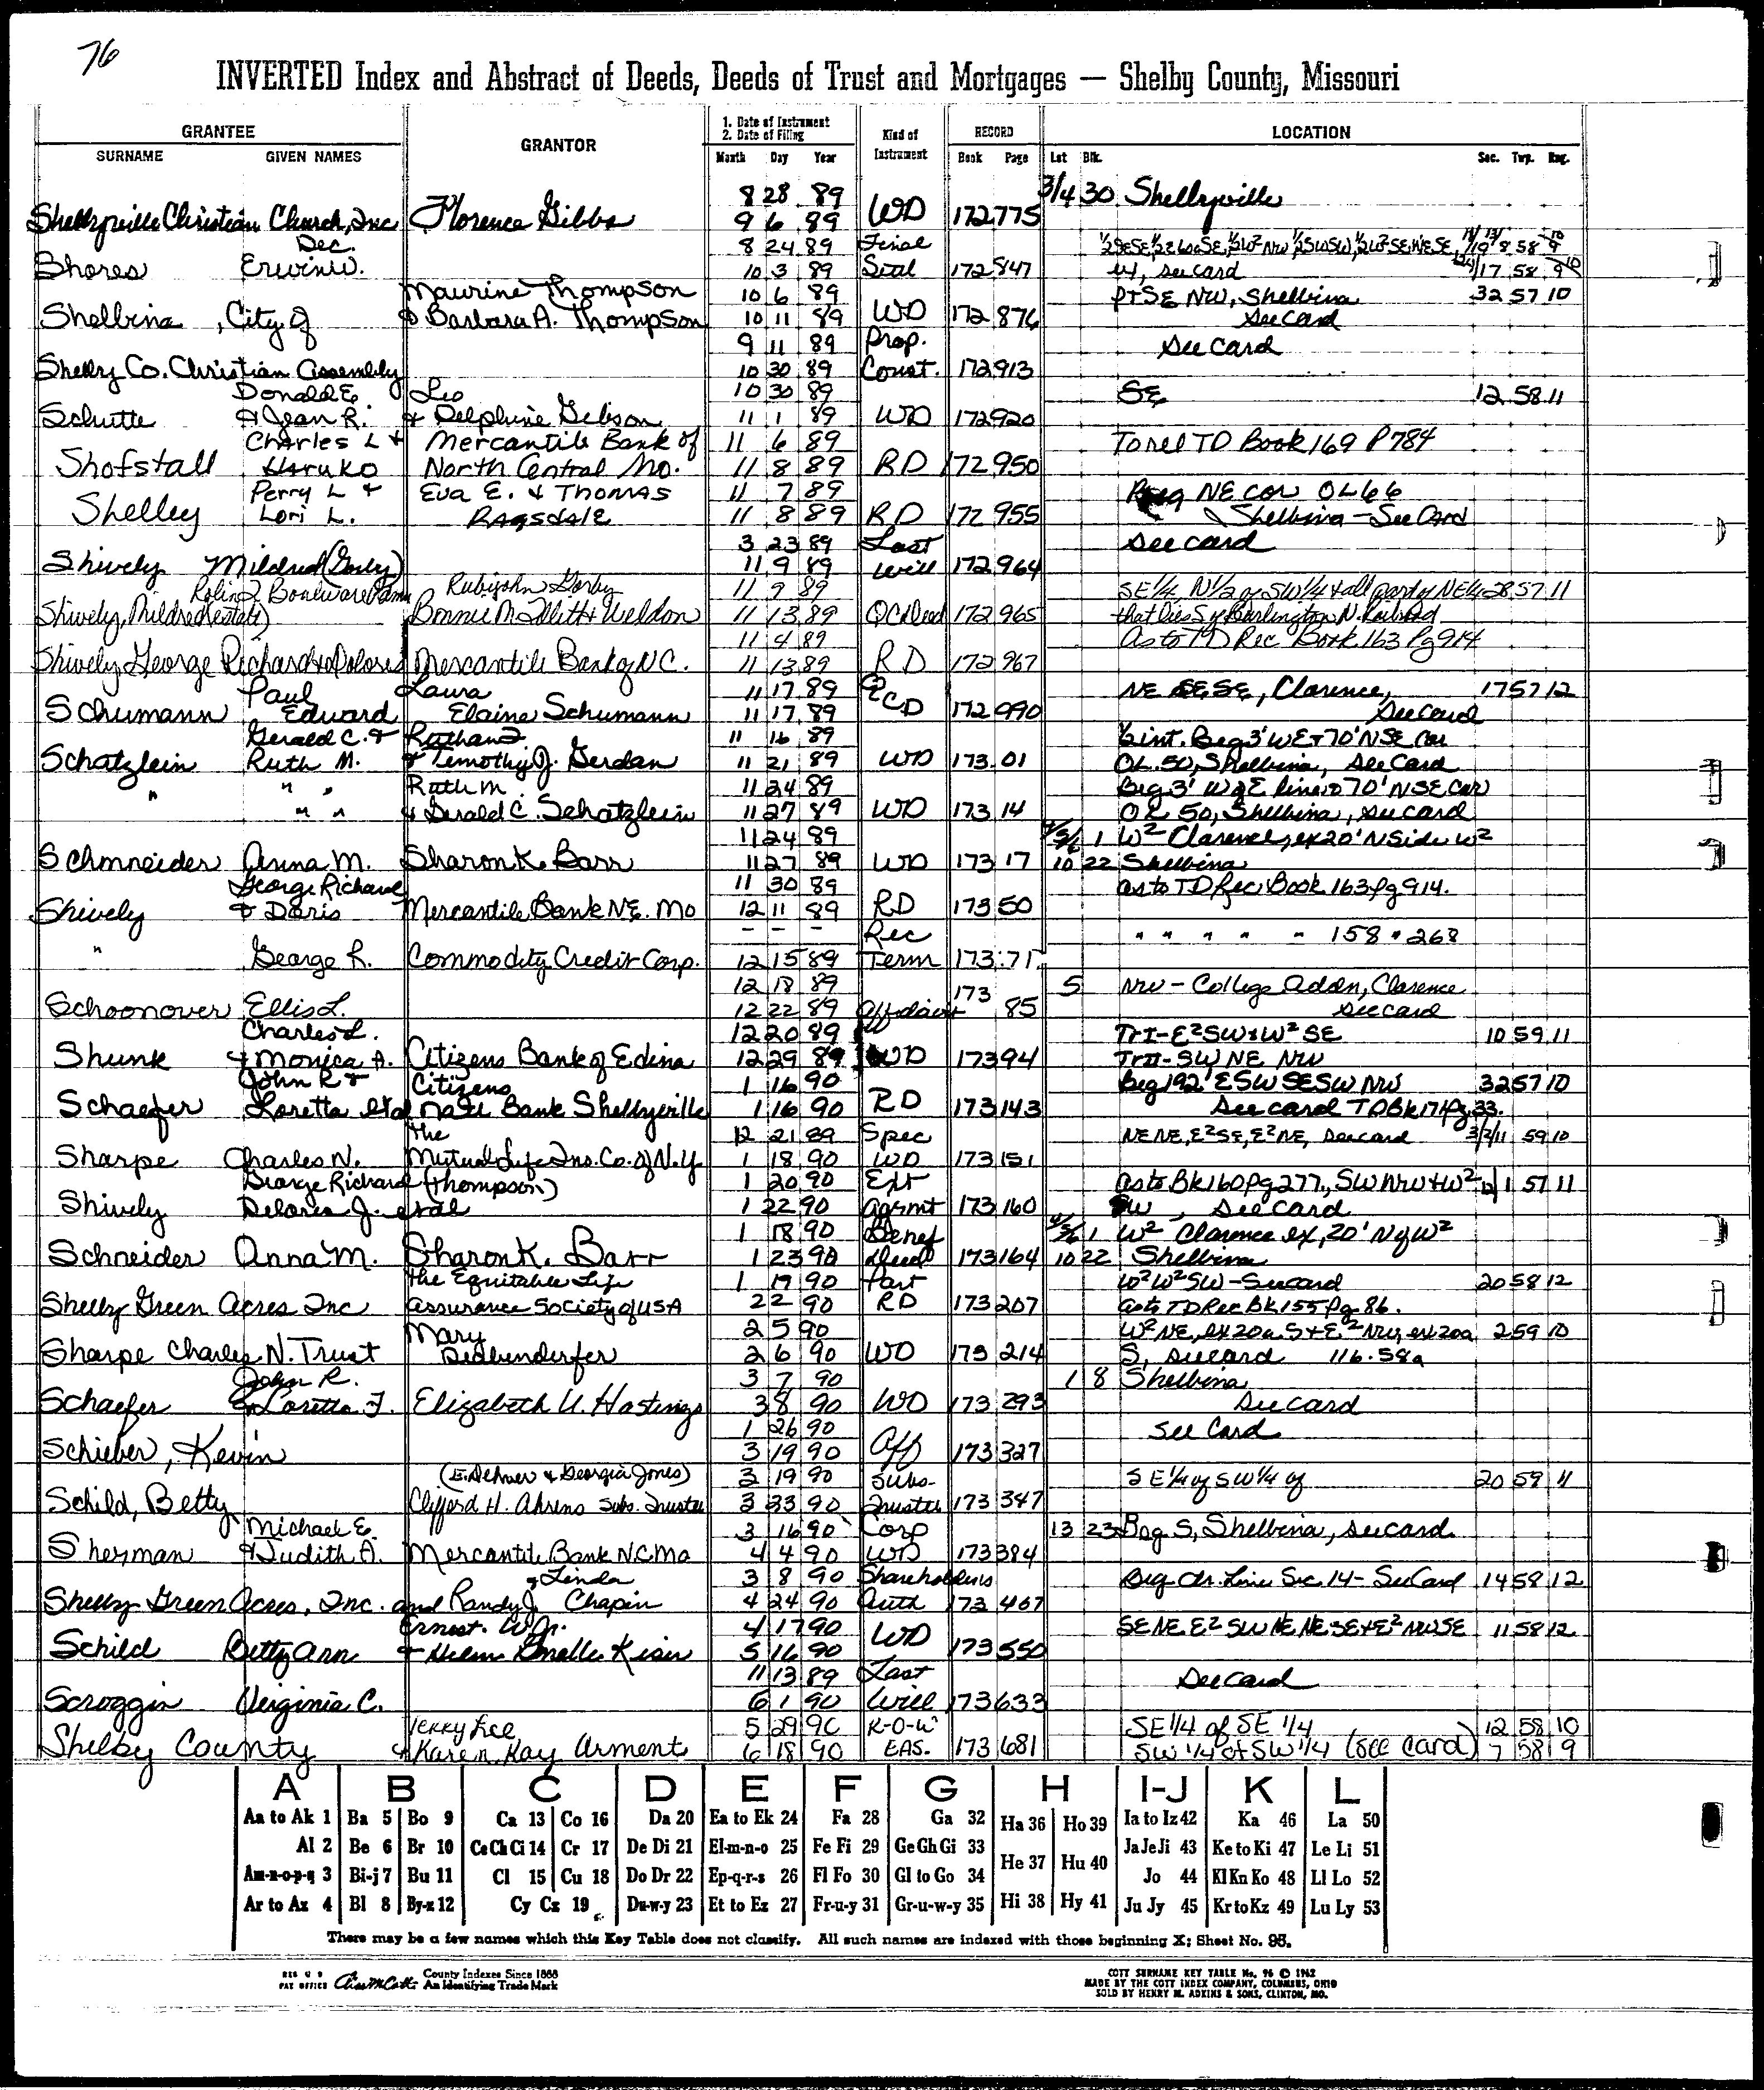 76
INVERTED Index and Abstract of Deeds, Deeds of Trust and Mortgages — Shelby County, Missouri
GRANTEE GRANTOR 1. Date of Instrument 2. Date of Filing Kind of Instrument RECORD LOCATION
SURNAME GIVEN NAMES Month Day Year Book Page Lot Blk. Sec. Twp. Rng.
8 28 89 3/4 30 Shelbyville
Shelbyville Christian Church, Inc Florence Gibbs 9 6 89 WD 172 775
Dec. 8 24 89 Final
Shores Erwin W. 10 3 89 Setl 172 847 see card
Maurine Thompson 10 6 89 PT SE NW, Shelbina 32 57 10
Shelbina, City of & Barbara A. Thompson 10 11 89 WD 172 876 see card
9 11 89 Prop. see card
Shelby Co. Christian Assembly 10 30 89 Const. 172 913
Donald E. Leo 10 30 89 SE 12 58 11
Schutte & Jean R. & Delphine Gibson 11 1 89 WD 172 920
Charles L & Mercantile Bank of 11 6 89 To rel TD Book 169 P 784
Shofstall Haruko North Central Mo. 11 8 89 RD 172 950
Perry L & Eva E. & Thomas 11 7 89 Beg NE cor OL 66
Shelley Lori L. Ragsdale 11 8 89 RD 172 955 Shelbina - See Card
3 23 89 Last see card
Shively Mildred (Gorby) 11 9 89 Will 172 964
Rubyjohn Gorby 11 9 89 SE 1/4, N 1/2 of SW 1/4 & all part of NE 1/4 28 57 11
Shively, Mildred (estate) Bonnie M. & Weldon 11 13 89 QC Deed 172 965 that lies S of Burlington N. Railroad
11 4 89 As to TD Rec Book 163 Pg 914
Shively, George Richard & Dolores Mercantile Bank of N.C. 11 13 89 RD 172 967
Paul Laura 11 17 89 NE SE SE, Clarence, 17 57 12
Schumann Edward Elaine Schumann 11 17 89 QCD 172 990 see card
Gerald C. & Ruthann 11 16 89 int. Beg 3' W E & 70' N SE Cor
Schatzlein Ruth M. & Timothy J. Gerdan 11 21 89 WD 173 01 OL 50, Shelbina, see card
" " " Ruth M. 11 24 89 Beg 3' W of E line & 70' N SE Cor
" " & Gerald C. Schatzlein 11 27 89 WD 173 14 OL 50, Shelbina, see card
11 24 89 4/5/6 1 W² Clarence, ex 20' N Side W²
Schnneider Anna M. Sharon K. Barr 11 27 89 WD 173 17 10 22 Shelbina
George Richard 11 30 89 as to TD Rec Book 163 pg 914.
Shively & Doris Mercantile Bank NE. Mo 12 11 89 RD 173 50
- - - Rec " " " " " 158 " 268
" George R. Commodity Credit Corp. 12 15 89 Term 173 71
12 18 89 173 5 NW - College Addn, Clarence
Schoonover Ellis L. 12 22 89 Affidavit 85 see card
Charles L. 12 20 89 Tr I - E² SW & W² SE 10 59 11
Shunk & Monica A. Citizens Bank of Edina 12 29 89 WD 173 94 Tr II - SW NE NW
John R & Citizens 1 16 90 Beg 192' E SW SE SW NW 32 57 10
Schaefer Loretta etal Natl Bank Shelbyville 1 16 90 RD 173 143 See card TD Bk 171 Pg. 33.
The 12 21 89 Spec NE NE, E² SE, E² NE, see card 3/2/11 59 10
Sharpe Charles N. Mutual Life Ins. Co. of N.Y. 1 18 90 WD 173 151
George Richard (Thompson) 1 20 90 Ext as to Bk 160 pg 277, SW NW & W² 1 57 11
Shively Delores J. etal 1 22 90 Agrmt 173 160 SW, see card
1 18 90 Benef 4/5/6 1 W² Clarence ex, 20' N of W²
Schneider Anna M. Sharon K. Barr 1 23 90 Deed 173 164 10 22 Shelbina
The Equitable Life 1 19 90 Part W² W² SW - See card 20 58 12
Shelby Green Acres Inc Assurance Society of USA 2 2 90 RD 173 207 as to TD Rec Bk 155 Pg 86.
Mary 2 5 90 W² NE, ex 20a S & E² NW, ex 20a 2 59 10
Sharpe Charles N. Trust 2 6 90 WD 173 214 S, see card 116.58a
John R. 3 7 90 1 8 Shelbina
Schaefer & Loretta J. Elizabeth U. Hastings 3 8 90 WD 173 293 see card
1 26 90 See Card
Schieber, Kevin 3 19 90 Aff 173 327
(E. Delmer & Georgia Jones) 3 19 90 Subs- SE 1/4 of SW 1/4 of 20 59 11
Schild, Betty Clifford H. Ahrens Subs. Trustee 3 23 90 Trustee 173 347
Michael E. 3 16 90 Corp 13 23 Beg S, Shelbina, see card
Sherman & Judith A. Mercantile Bank N.C. Mo 4 4 90 WD 173 384
& Linda 3 8 90 Shareholders Beg Cn. Line Sec. 14 - See Card 14 58 12
Shelby Green Acres, Inc. and Randy J. Chapin 4 24 90 Auth 173 467
Ernest W. Jr. 4 17 90 SE NE E² SW NE NE SE & E² NW SE 11 58 12
Schild Betty Ann & Helen Kiser 5 16 90 WD 173 550
11 13 89 Last See Card
Scroggin Virginia C. 6 1 90 Will 173 633
Terry Lee 5 29 90 R-O-W SE 1/4 of SE 1/4 12 58 10
Shelby County & Karen Kay Arment 6 18 90 EAS. 173 681 SW 1/4 of SW 1/4 (see card) 7 58 9
A B C D E F G H I-J K L
Aa to Ak 1 Ba 5 Bo 9 Ca 13 Co 16 Da 20 Ea to Ek 24 Fa 28 Ga 32 Ha 36 Ho 39 Ia to Iz 42 Ka 46 La 50
Al 2 Be 6 Br 10 Ce Ch Ci 14 Cr 17 De Di 21 El-m-n-o 25 Fe Fi 29 Ge Gh Gi 33 He 37 Hu 40 Ja Je Ji 43 Ke to Ki 47 Le Li 51
Am-n-o-p-q 3 Bi-j 7 Bu 11 Cl 15 Cu 18 Do Dr 22 Ep-q-r-s 26 Fl Fo 30 Gl to Go 34 Jo 44 Kl Kn Ko 48 Ll Lo 52
Ar to Az 4 Bl 8 By-z 12 Cy Cz 19 Du-w-y 23 Et to Ez 27 Fr-u-y 31 Gr-u-w-y 35 Hi 38 Hy 41 Ju Jy 45 Kr to Kz 49 Lu Ly 53
There may be a few names which this Key Table does not classify. All such names are indexed with those beginning X; Sheet No. 95.
County Indexes Since 1888
An Identifying Trade Mark
COTT SURNAME KEY TABLE No. 96 © 1962
MADE BY THE COTT INDEX COMPANY, COLUMBUS, OHIO
SOLD BY HENRY M. ADKINS & SONS, CLINTON, MO.